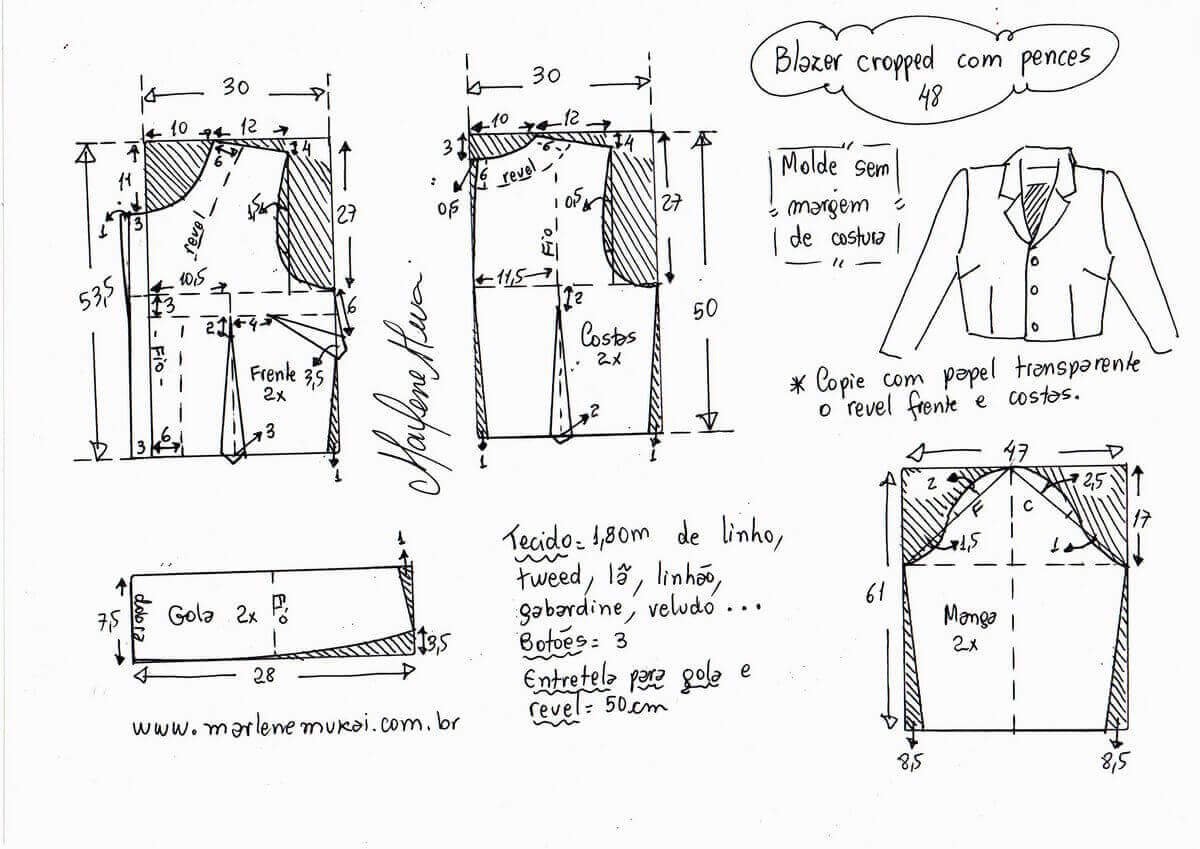 Blazer cropped com pences
48
Molde sem
margem
de costura
* Copie com papel transparente
o revel frente e costas.
30
10 12
11
6
4
3
1
1,5
revel
27
53,5
10,5
3
2
4
6
Fio
Frente 3,5
2x
3
6
3
1
30
10 12
3
4
6
revel
0,5
0,5
Fio
27
11,5
2
50
Costas
2x
2
1
1
47
2
2,5
F
C
17
1,5
1
61
Manga
2x
8,5
8,5
1
7,5
dobra
Gola 2x
Fio
3,5
28
www.marlenemukai.com.br
Tecido= 1,80m de linho,
tweed, lã, linhão,
gabardine, veludo ...
Botões= 3
Entretela para gola e
revel= 50cm